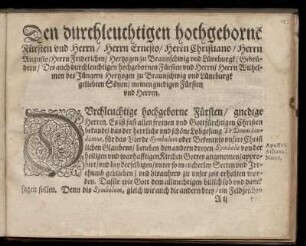 Den durchleuchtigen hochgebornē
Fürsten vnd Herrn/ Herrn Ernesto/ Herrn Christiano/ Herrn
Augusto/ Herrn Friderichen/ Hertzogen zu Braunschwig vnd Lüneburgk/ Gebrü-
dern/ Des auch durchleuchtigen hochgebornen Fürsten vnd Herrn/ Herrn Wilhel-
men des Jüngern Hertzogen zu Braunschwig vnd Lüneburgk
geliebten Sönen/ meinen gnedigen Fürsten
vnd Herren.
DVrchleuchtige hochgeborne Fürsten/ gnedige
Herren. Es ist fast allen frommen vnd Gottsfürchtigen Christen
bekandt/ das der herrliche vnd schöne Lobgesang Te Deum lau-
damus, für das Vierde Symbolum oder Bekentnis vnsers Christ-
lichen Glaubens/ beneben den andern dreyen Symbolis von der
heiligen vnd warhafftigen Kirchen Gottes angenommen/ appro-
biert/ vnd bey derselbigen/
geblieben/ vnd biß anhero zu vnser zeit erhalten wor-
den. Dafür wir Gott dem allmechtigen billich lob vnd danck
sagen sollen. Denn diß Symbolum, gleich wie auch die andern drey/ ein Feldzeichen
A ij